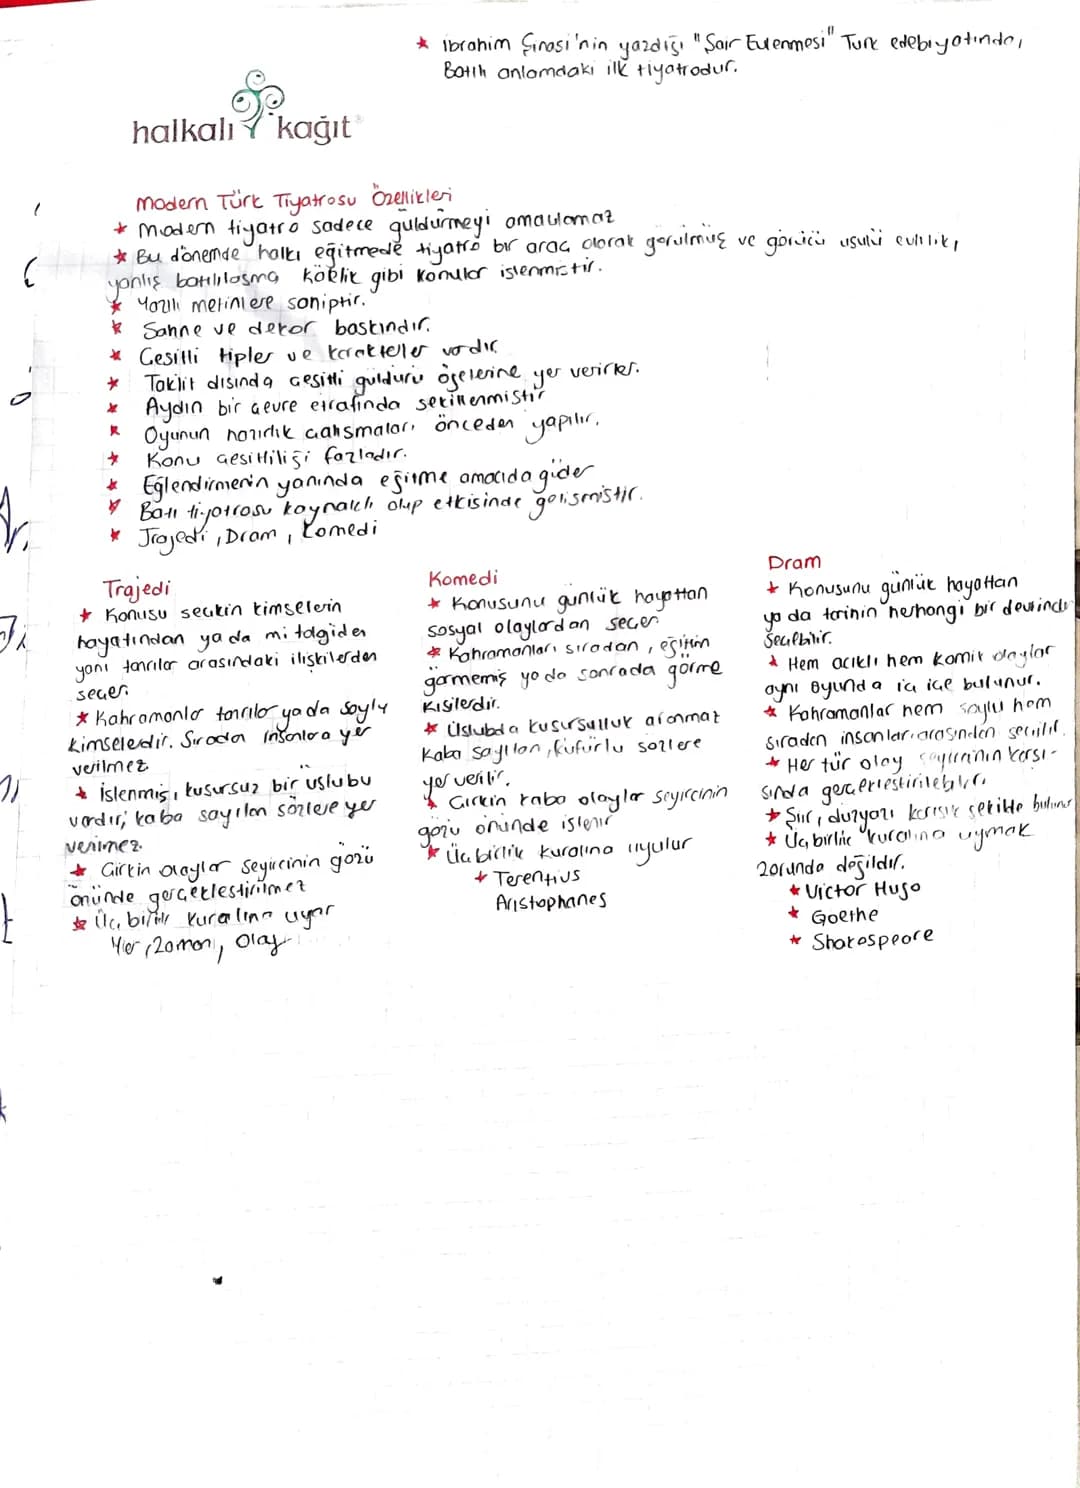 ★ Ibrahim Şinasi'nin yazdığı "Sair Evlenmesi" Turk edebiyatında,
Batılı anlamdaki ilk tiyatrodur.
halkalı kağıt
Modern Türk Tiyatrosu Özellikleri
★ Modern tiyatro sadece güldürmeyi amaclamaz
★ Bu dönemde halkı eğitmede tiyatro bir arac olarak görülmüş ve görücü usulü evlilik,
yanlış batılılasma kölelik gibi konular islenmistir.
★ Yazılı metinlere sahiptir.
★ Sahne ve dekor baskındır.
★ Cesitli tipler ve karakteller vardır
★ Taklit dısında cesitli gulduru öğelerine yer verirler.
★ Aydın bir cevre etrafında sekillenmistir
★ Oyunun hazırlık calısmaları önceden yapılır.
★ Konu cesitliliği fazladır.
★ Eğlendirmenin yanında eğitme amacıda güder
★ Batı tiyatrosu kaynaklı olup etkisinde gelismistir.
★ Trajedi, Dram, Komedi
Trajedi
★ Konusu seckin kimselerin
hayatından ya da mitolojiden
yani tanrılar arasındaki ilişkilerden
secer.
★ Kahramanlar tanrılar ya da soylu
kimselerdir. Sıradan insanlara yer
verilmez
★ İslenmiş, kusursuz bir uslubu
vardır; kaba sayılan sözlere yer
verilmez.
★ Cirkin olaylar seyircinin gözü
önünde gerceklestirilmez
★ Üc birlik kuralına uyar
Yer, zaman, olay
Komedi
★ Konusunu gunlük hayattan
sosyal olaylardan secer
★ Kahramanları sıradan, eğitim
görmemiş ya da sonrada görme
kisilerdir.
★ Üslubda kusursulluk aranmaz
Kaba sayılan, küfürlü sozlere
yer verilir.
★ Cirkin kaba olaylar seyircinin
gözü önünde islenir
★ Üc birlik kuralına uyulur
★ Terentius
Aristophanes
Dram
★ Konusunu günlük hayattan
ya da tarihin herhangi bir devrinde
secebilir.
★ Hem acıklı hem komik olaylar
aynı oyunda ic ice bulunur.
★ Kahramanlar hem soylu hem
sıradan insanlar arasından secilir.
★ Her tür olay seyircinin karsı-
sında gerceklestirilebilir.
★ Siir, duzyazı karısık sekilde bulunur
★ Üc birlik kuralına uymak
zorunda değildir.
★ Victor Hugo
★ Goethe
★ Shakespeare